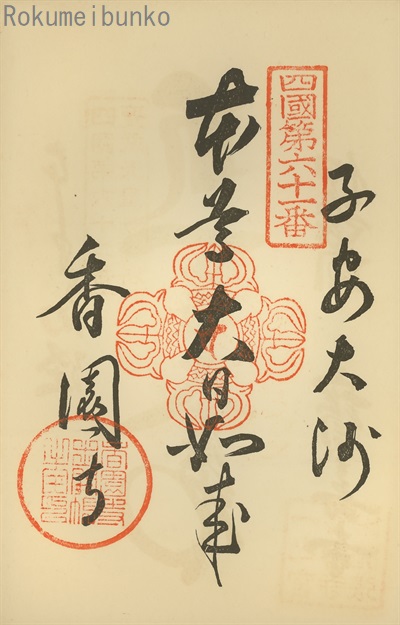 Rokumeibunko
四國第六十一番
子安大師
本尊大日如来
香園寺